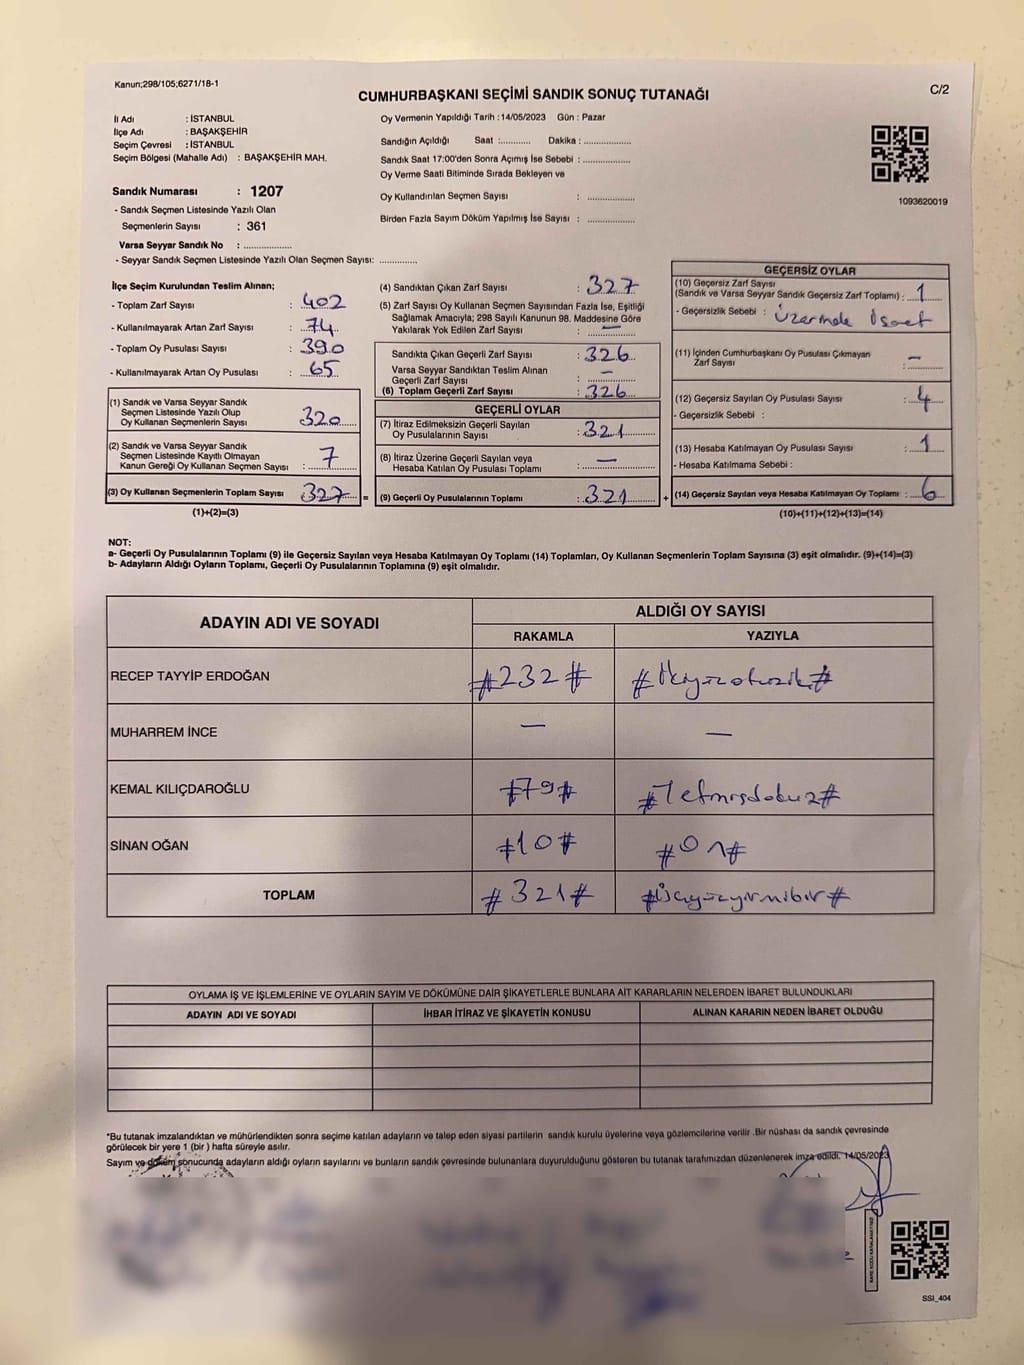 Kanun;298/105;6271/18-1
C/2
CUMHURBAŞKANI SEÇİMİ SANDIK SONUÇ TUTANAĞI
İl Adı : İSTANBUL
İlçe Adı : BAŞAKŞEHİR
Seçim Çevresi : İSTANBUL
Seçim Bölgesi (Mahalle Adı) : BAŞAKŞEHİR MAH.
Sandık Numarası : 1207
- Sandık Seçmen Listesinde Yazılı Olan
Seçmenlerin Sayısı : 361
Varsa Seyyar Sandık No : ................
- Seyyar Sandık Seçmen Listesinde Yazılı Olan Seçmen Sayısı: ..............
Oy Vermenin Yapıldığı Tarih : 14/05/2023 Gün : Pazar
Sandığın Açıldığı Saat :........... Dakika : ................
Sandık Saat 17:00'den Sonra Açımış İse Sebebi : ................
Oy Verme Saati Bitiminde Sırada Bekleyen ve
Oy Kullandırılan Seçmen Sayısı : ................
Birden Fazla Sayım Döküm Yapılmış İse Sayısı : ................
1093620019
İlçe Seçim Kurulundan Teslim Alınan;
- Toplam Zarf Sayısı : 402
- Kullanılmayarak Artan Zarf Sayısı : 74
- Toplam Oy Pusulası Sayısı : 390
- Kullanılmayarak Artan Oy Pusulası : 65
(1) Sandık ve Varsa Seyyar Sandık
Seçmen Listesinde Yazılı Olup
Oy Kullanan Seçmenlerin Sayısı : 320
(2) Sandık ve Varsa Seyyar Sandık
Seçmen Listesinde Kayıtlı Olmayan
Kanun Gereği Oy Kullanan Seçmen Sayısı : 7
(3) Oy Kullanan Seçmenlerin Toplam Sayısı : 327 =
(1)+(2)=(3)
(4) Sandıktan Çıkan Zarf Sayısı : 327
(5) Zarf Sayısı Oy Kullanan Seçmen Sayısından Fazla İse, Eşitliği
Sağlamak Amacıyla; 298 Sayılı Kanunun 98. Maddesine Göre
Yakılarak Yok Edilen Zarf Sayısı : —
Sandıkta Çıkan Geçerli Zarf Sayısı : 326
Varsa Seyyar Sandıktan Teslim Alınan
Geçerli Zarf Sayısı : —
(6) Toplam Geçerli Zarf Sayısı : 326
GEÇERLİ OYLAR
(7) İtiraz Edilmeksizin Geçerli Sayılan
Oy Pusulalarının Sayısı : 321
(8) İtiraz Üzerine Geçerli Sayılan veya
Hesaba Katılan Oy Pusulası Toplamı : —
(9) Geçerli Oy Pusulalarının Toplamı : 321 +
GEÇERSİZ OYLAR
(10) Geçersiz Zarf Sayısı
(Sandık ve Varsa Seyyar Sandık Geçersiz Zarf Toplamı) : 1
- Geçersizlik Sebebi : Üzerinde işaret
(11) İçinden Cumhurbaşkanı Oy Pusulası Çıkmayan
Zarf Sayısı : —
(12) Geçersiz Sayılan Oy Pusulası Sayısı : 4
- Geçersizlik Sebebi :
(13) Hesaba Katılmayan Oy Pusulası Sayısı : 1
- Hesaba Katılmama Sebebi :
(14) Geçersiz Sayılan veya Hesaba Katılmayan Oy Toplamı : 6
(10)+(11)+(12)+(13)=(14)
NOT:
a- Geçerli Oy Pusulalarının Toplamı (9) ile Geçersiz Sayılan veya Hesaba Katılmayan Oy Toplamı (14) Toplamları, Oy Kullanan Seçmenlerin Toplam Sayısına (3) eşit olmalıdır. (9)+(14)=(3)
b- Adayların Aldığı Oyların Toplamı, Geçerli Oy Pusulalarının Toplamına (9) eşit olmalıdır.
ADAYIN ADI VE SOYADI
ALDIĞI OY SAYISI
RAKAMLA YAZIYLA
RECEP TAYYİP ERDOĞAN #232# #ikiyüzotuziki#
MUHARREM İNCE — —
KEMAL KILIÇDAROĞLU #79# #Yetmişdokuz#
SİNAN OĞAN #10# #On#
TOPLAM #321# #üçyüzyirmibir#
OYLAMA İŞ VE İŞLEMLERİNE VE OYLARIN SAYIM VE DÖKÜMÜNE DAİR ŞİKAYETLERLE BUNLARA AİT KARARLARIN NELERDEN İBARET BULUNDUKLARI
ADAYIN ADI VE SOYADI İHBAR İTİRAZ VE ŞİKAYETİN KONUSU ALINAN KARARIN NEDEN İBARET OLDUĞU
*Bu tutanak imzalandıktan ve mühürlendikten sonra seçime katılan adayların ve talep eden siyasi partilerin sandık kurulu üyelerine veya gözlemcilerine verilir .Bir nüshası da sandık çevresinde
görülecek bir yere 1 (bir ) hafta süreyle asılır.
Sayım ve döküm sonucunda adayların aldığı oyların sayılarını ve bunların sandık çevresinde bulunanlara duyurulduğunu gösteren bu tutanak tarafımızdan düzenlenerek imza edildi. 14/05/2023
SSI_404